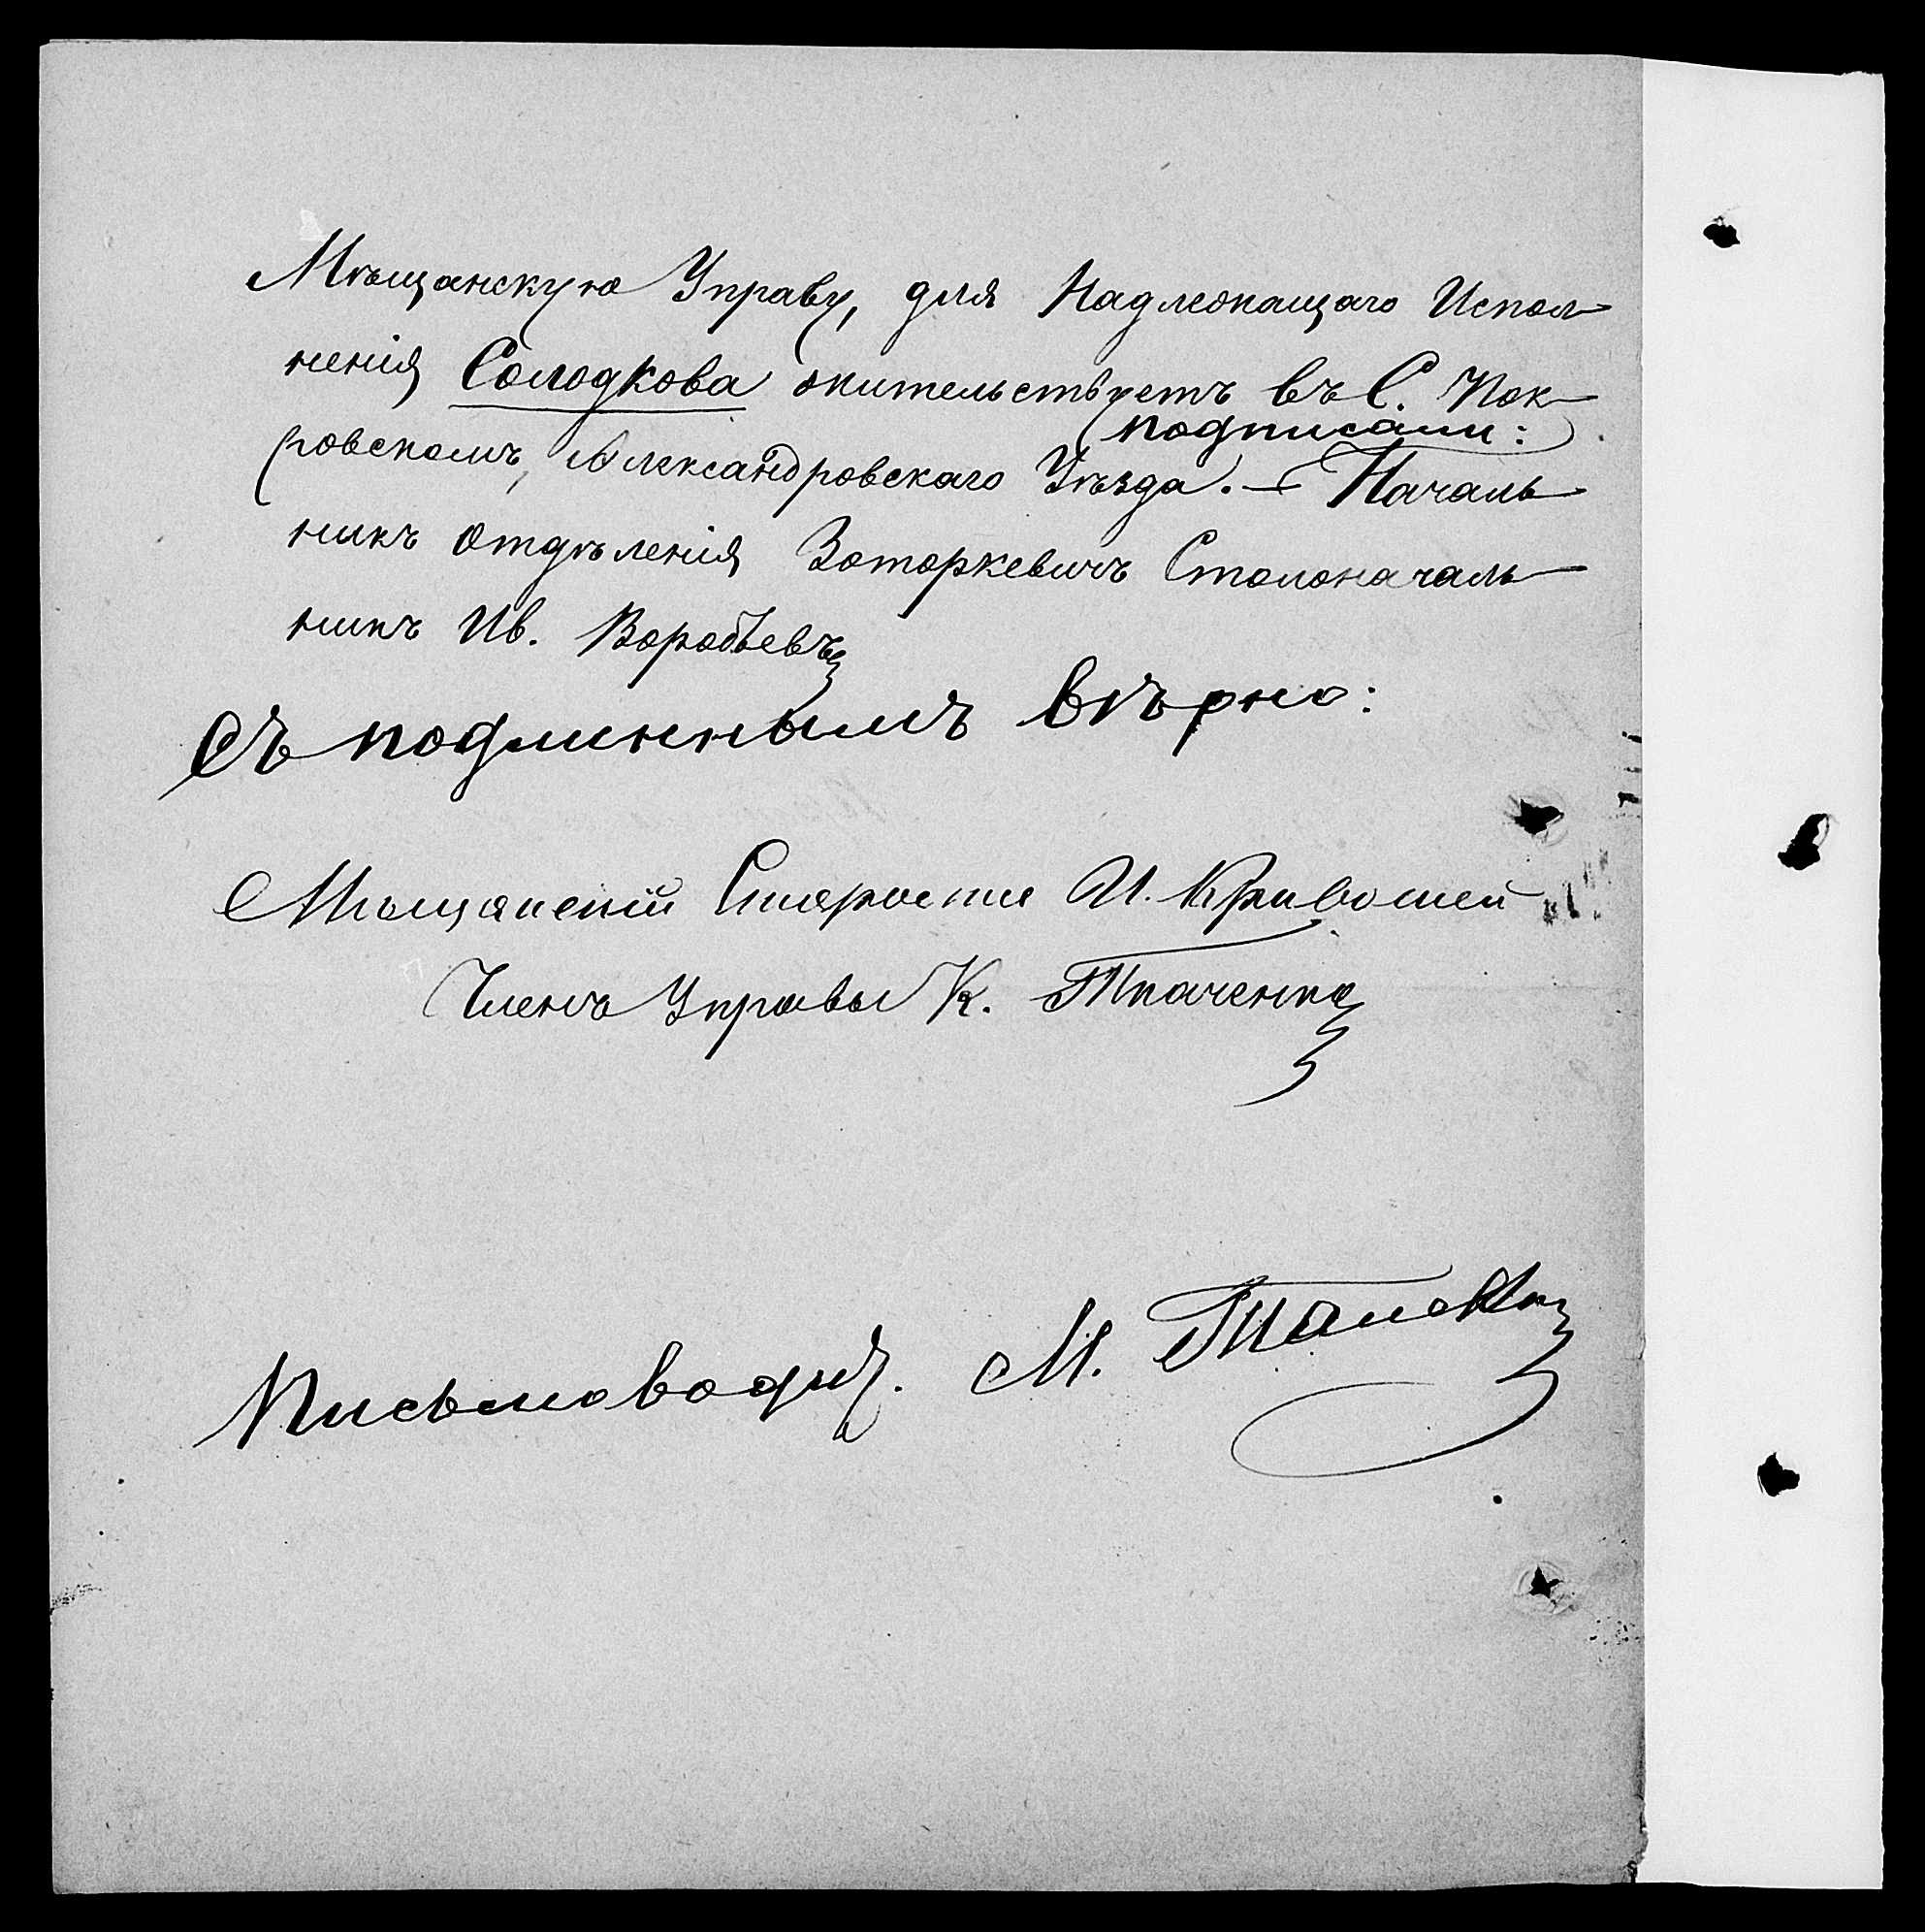 Мѣщанскую Управу, для Надлежащаго Испол-
ненія Солодкова жительствуетъ въ С. Пок-
подписали:
ровскомъ, Александровскаго Уѣзда. — Началь-
никъ Отдѣленія Воторкевичъ Столоначаль-
никъ Ив. Воробьевъ
Съ подлиннымъ вѣрно:
Мѣщанскій Староста И. Кривошей
Членъ Управы К. Ткаченко
Письмовод. М.